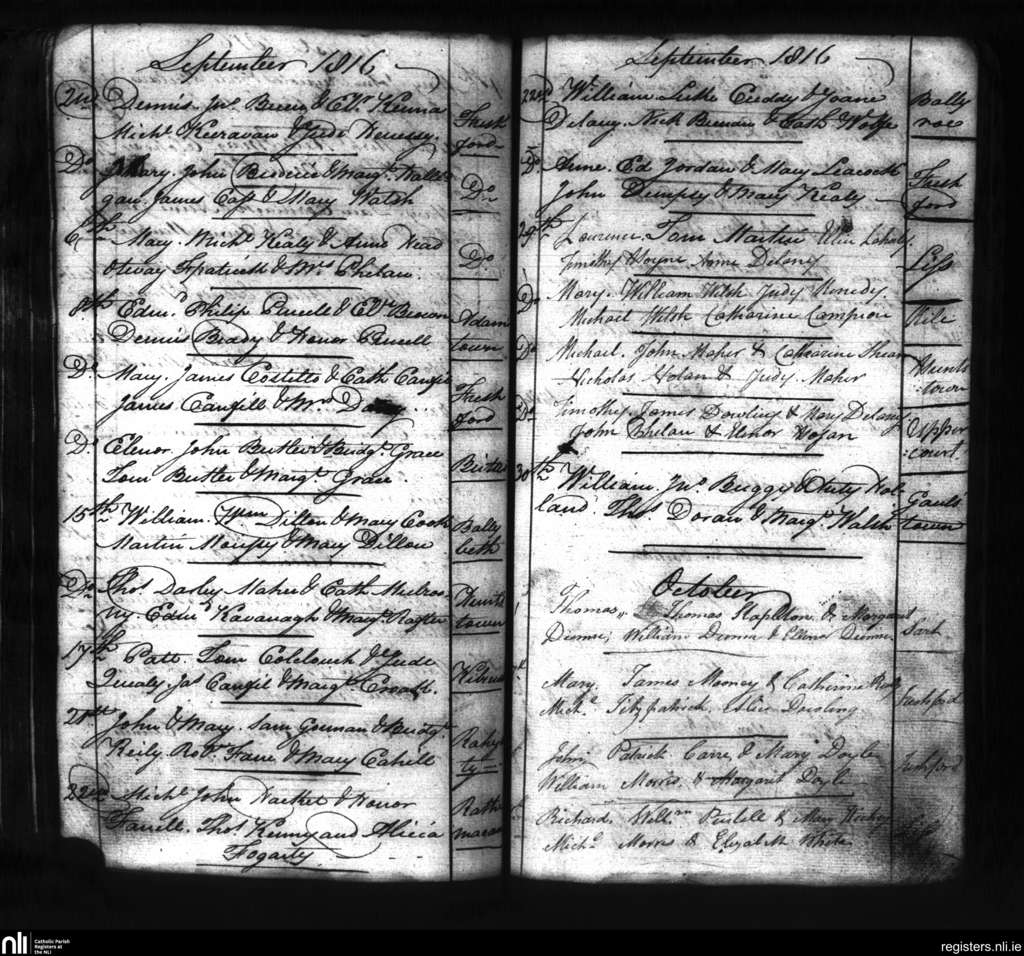 September 1816
2nd Dennis. Jno. Breen & Elln. Kenna
Michl. Keeravan & Jude Henessy. Fresh
ford
Do. Mary. John Broderic & Margt. Halli
gan. James Cass & Mary Walsh Do.
6th Mary. Michl. Healy & Anne Head
Otway Fitzpatrick & Mrs. Phelan. Do
8th Edmd. Philip Purcell & Elln. Beacon Adam
Dennis Brady & Honor Purcell town
Do. Mary. James Costello & Cath Caufil
James Caufill & Mrs. Fresh
ford
Do. Elenor. John Butler & Bridgt. Grace
Tom Butler & Margt. Grace.
15th William. Wm. Dillon & Mary Cook Bally
Martin Morissy & Mary Dillon beth
Do. Thos. Darley Maher & Cath Mulroo
ny. Edmd. Kavanagh & Margt. Rafter Hunts
town
17th Patt. Tom Colclough & Jude
Quealy Jas. Caufil & Margt. Croak.
21st John & Mary. Sam Gorman & Bridgt.
Reily. Robt. Fane & Mary Cahill
22nd Michl. John Harket & Honor Rath
Farrell. Thos. Kenny and Alicia
Fogarty
September 1816
22nd William Luke Cuddy & Joane Bally
Delany. Nick Brenan & Cath Wolfe roe
Do. Anne. Ed Jordan & Mary Leacock Fresh
John Dempsy & Mary Healy ford
29th Laurence. Tom Martin Ellen Lahaly
Timothy Hoyne Anne Delany Liss
Do. Mary. William Welsh Judy Kenedy.
Michael Welsh Catharine Campion Kile
Do Michael. John Maher & Catharine Shean Hunts
Nicholas Nolan & Judy Maher town
Do Timothy James Dowling & Mary Delany Upper
John Phelan & Elenor Hogan court
30th William. Jno. Buggy & Chity Hol
land. Thos. Doran & Margt. Walsh Gauls
town
October
Thomas, Thomas Stapleton & Margaret
Dunne; William Dunne & Ellenor Dunne Sart
Mary. James Mooney & Catherine
Michl. Fitzpatrick, Esther Dowling freshford
John, Patrick Carre, & Mary Doyle
William Morris, & Margaret Doyle freshford
Richard, Willm. Pursell & Mary Hickey
Michl. Morris & Elizabeth White
nli
Catholic Parish
Registers at
the NLI
registers.nli.ie